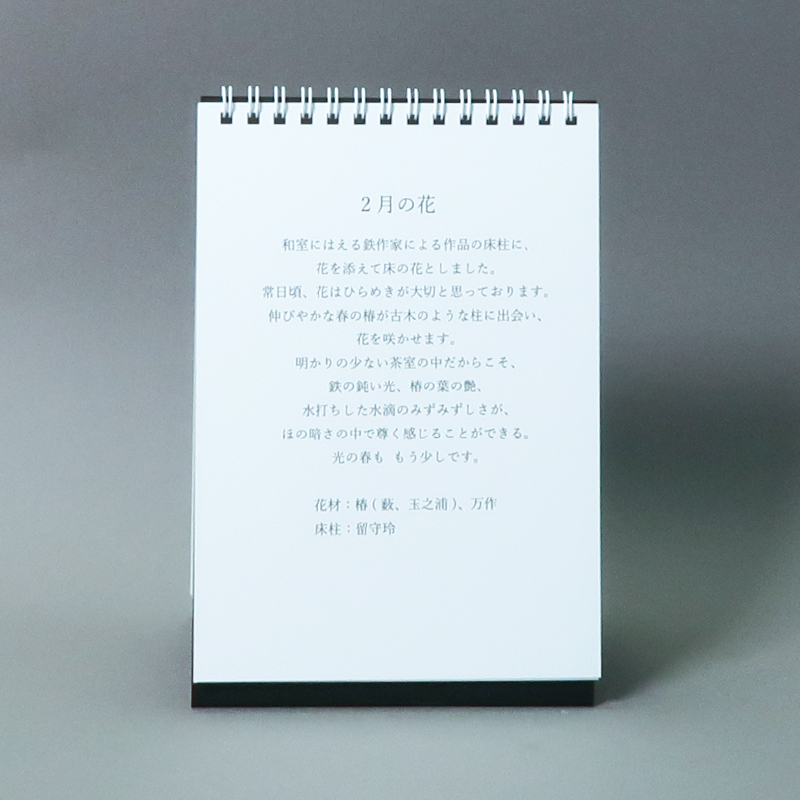 2月の花
和室にはえる鉄作家による作品の床柱に、
花を添えて床の花としました。
常日頃、花はひらめきが大切と思っております。
伸びやかな春の椿が古木のような柱に出会い、
花を咲かせます。
明かりの少ない茶室の中だからこそ、
鉄の鈍い光、椿の葉の艶、
水打ちした水滴のみずみずしさが、
ほの暗さの中で尊く感じることができる。
光の春も もう少しです。
花材：椿(藪、玉之浦)、万作
床柱：留守玲